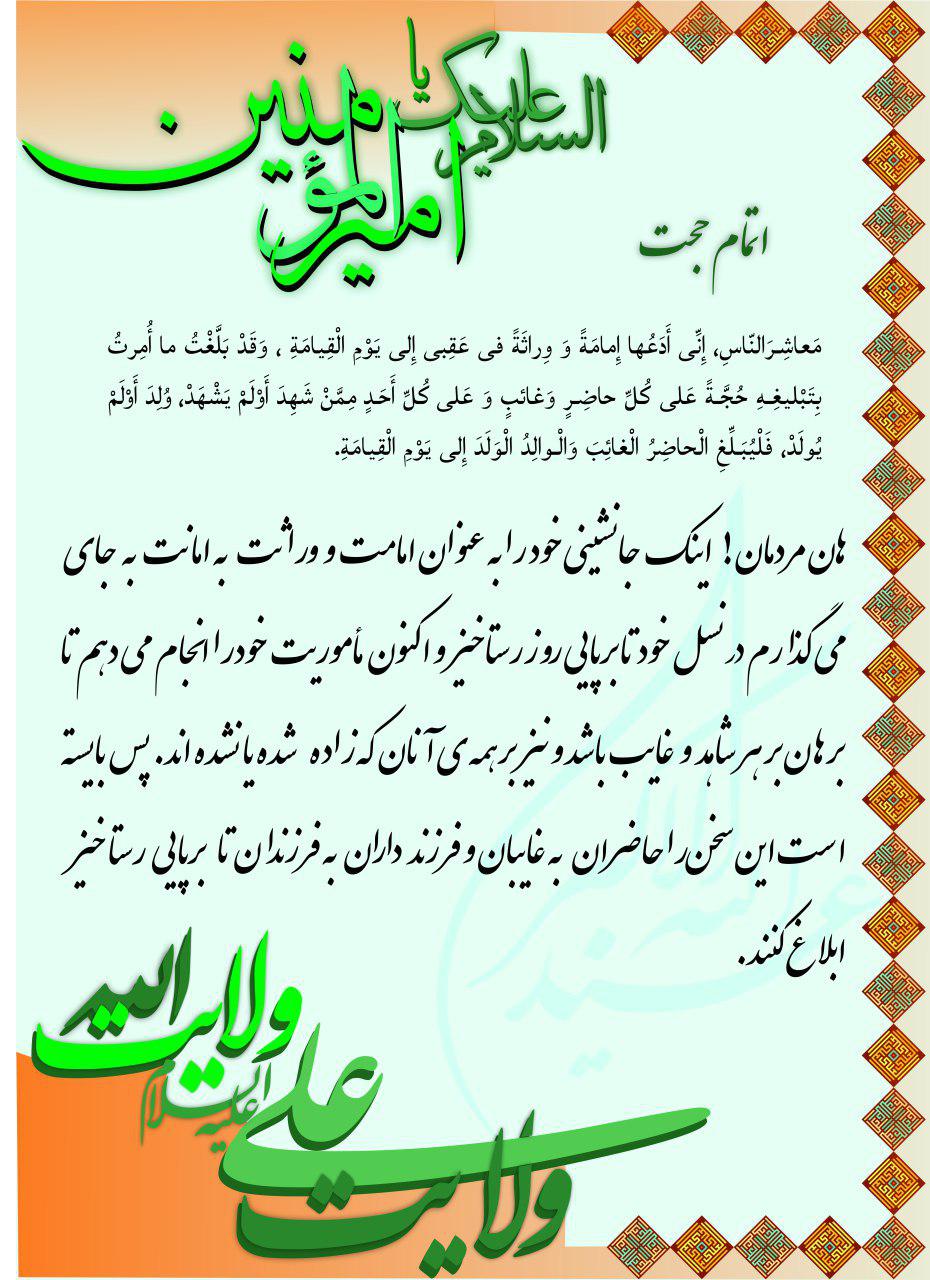 السلام علیک یا
امیرالمؤمنین
اتمام حجت
مَعاشِرَالنّاسِ، إِنِّی أَدَعُها إِمامَةً وَ وِراثَةً فی عَقِبی إِلی یَوْمِ الْقِیامَةِ ، وَقَدْ بَلَّغْتُ ما أُمِرتُ
بِتَبْلیغِهِ حُجَّةً عَلی کُلِّ حاضِرٍ وَغائبٍ وَ عَلی کُلِّ أَحَدٍ مِمَّنْ شَهِدَ أَوْلَمْ یَشْهَدْ، وُلِدَ أَوْلَمْ
یُولَدْ، فَلْیُبَلِّغِ الْحاضِرُ الْغائِبَ وَالْوالِدُ الْوَلَدَ إِلی یَوْمِ الْقِیامَةِ.
هان مردمان! اینک جانشینی خود را به عنوان امامت و وراثت به امانت به جای
می گذارم در نسل خود تا برپایی روز رستاخیز و اکنون مأموریت خود را انجام می دهم تا
برهان بر هر شاهد و غایب باشد و نیز بر همه ی آنان که زاده شده یا نشده اند. پس بایسته
است این سخن را حاضران به غایبان و فرزند داران به فرزندان تا برپایی رستاخیز
ابلاغ کنند.
ولایت الله
ولایت علی علیه السلام